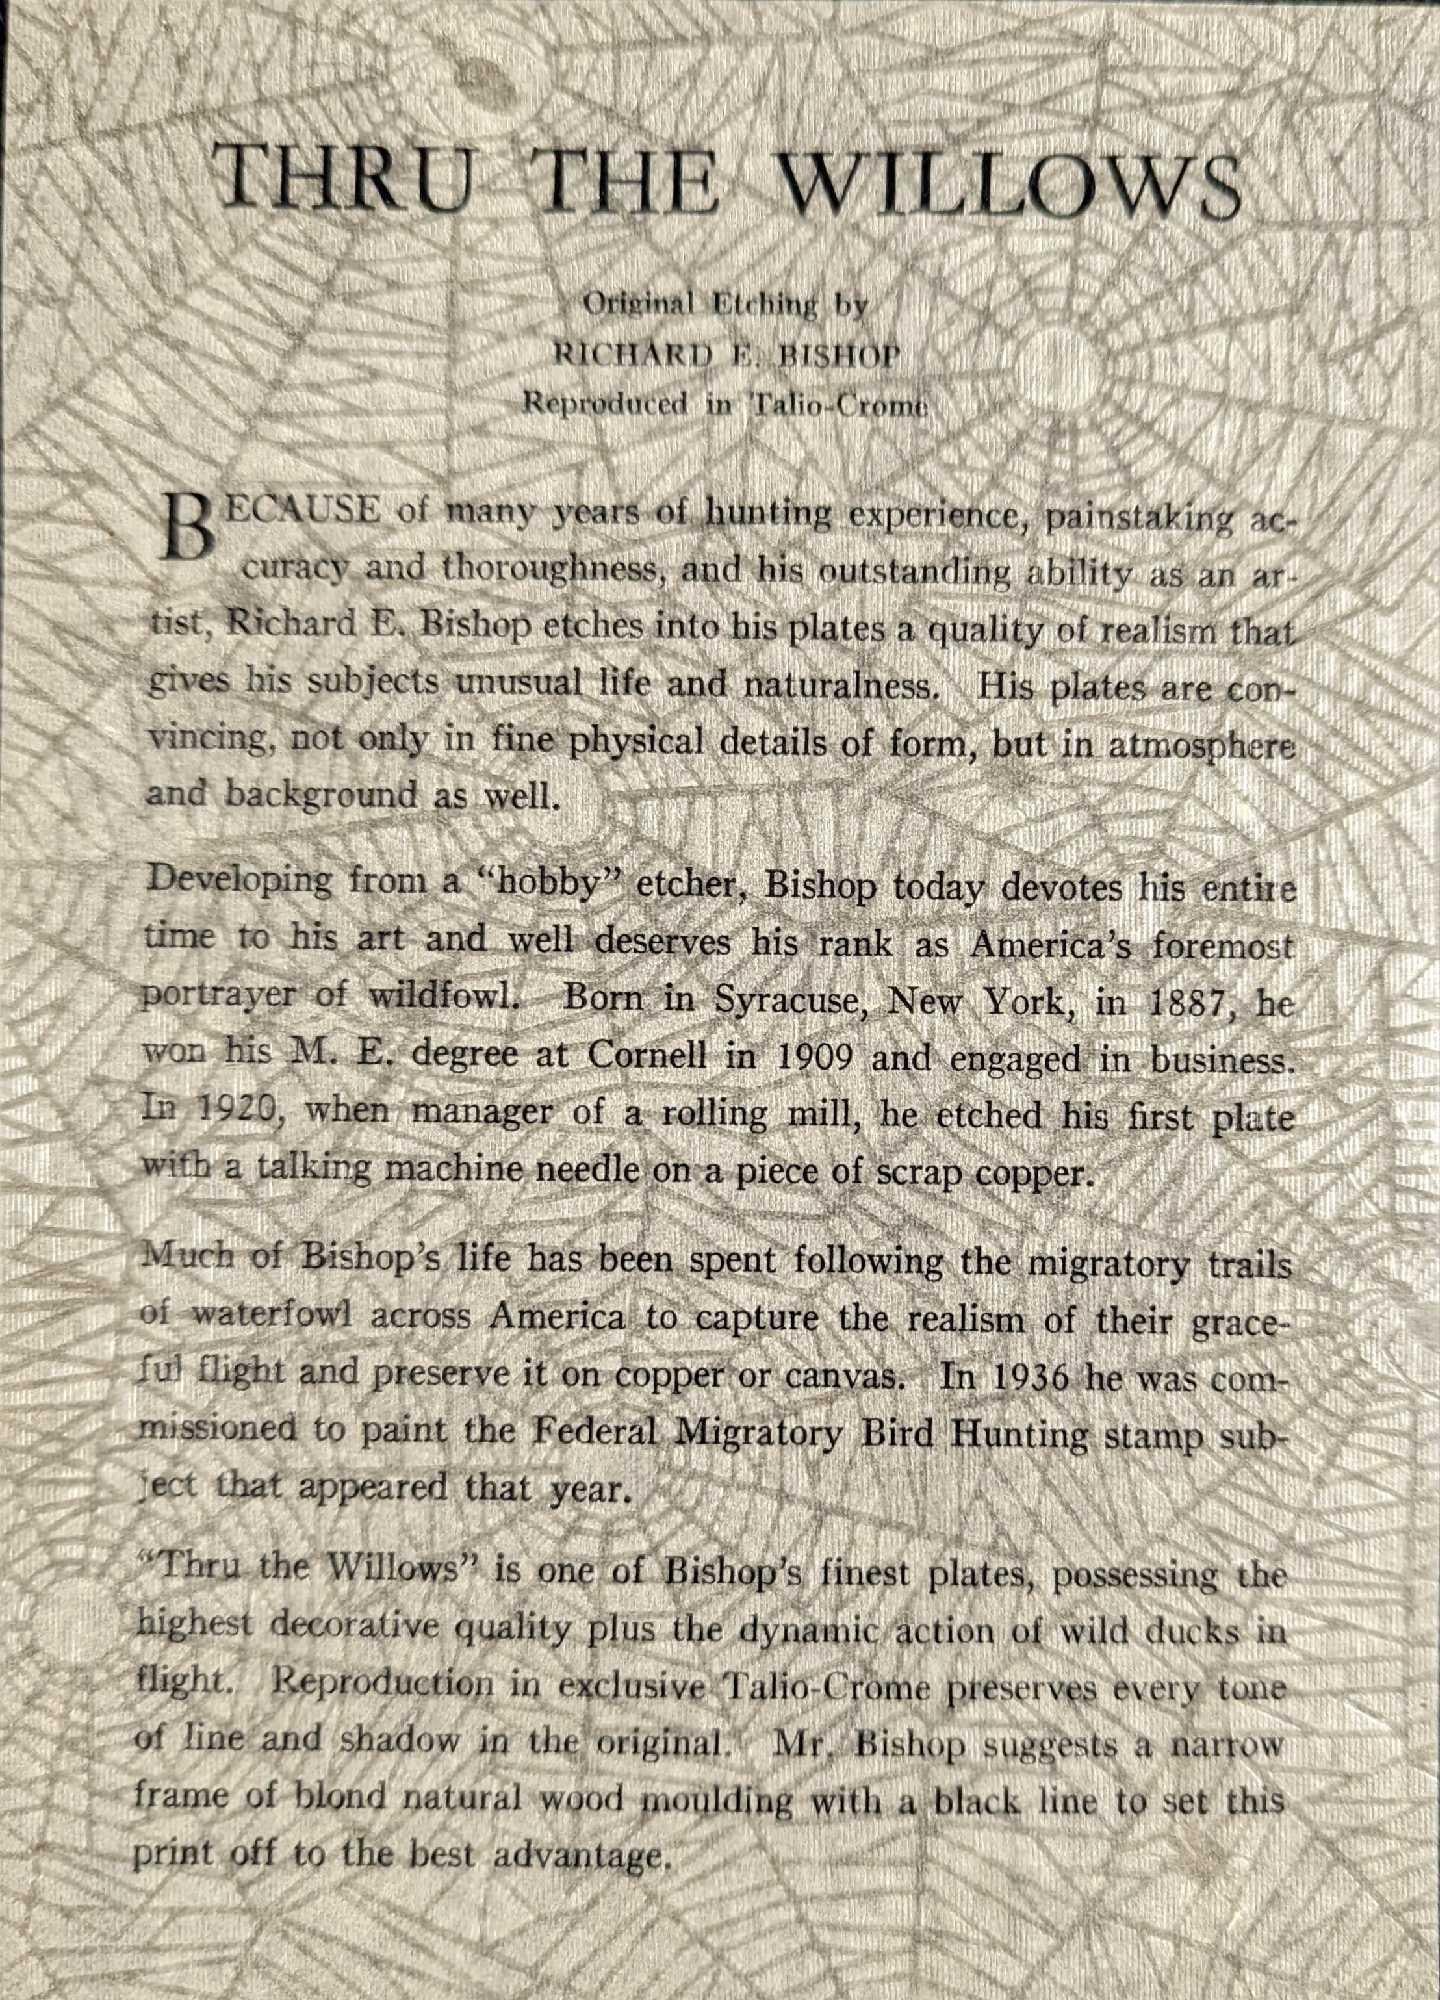 THRU THE WILLOWS
Original Etching by
RICHARD E. BISHOP
Reproduced in Talio-Crome
BECAUSE of many years of hunting experience, painstaking ac-
curacy and thoroughness, and his outstanding ability as an ar-
tist, Richard E. Bishop etches into his plates a quality of realism that
gives his subjects unusual life and naturalness. His plates are con-
vincing, not only in fine physical details of form, but in atmosphere
and background as well.
Developing from a “hobby” etcher, Bishop today devotes his entire
time to his art and well deserves his rank as America’s foremost
portrayer of wildfowl. Born in Syracuse, New York, in 1887, he
won his M. E. degree at Cornell in 1909 and engaged in business.
In 1920, when manager of a rolling mill, he etched his first plate
with a talking machine needle on a piece of scrap copper.
Much of Bishop’s life has been spent following the migratory trails
of waterfowl across America to capture the realism of their grace-
ful flight and preserve it on copper or canvas. In 1936 he was com-
missioned to paint the Federal Migratory Bird Hunting stamp sub-
ject that appeared that year.
“Thru the Willows” is one of Bishop’s finest plates, possessing the
highest decorative quality plus the dynamic action of wild ducks in
flight. Reproduction in exclusive Talio-Crome preserves every tone
of line and shadow in the original. Mr. Bishop suggests a narrow
frame of blond natural wood moulding with a black line to set this
print off to the best advantage.